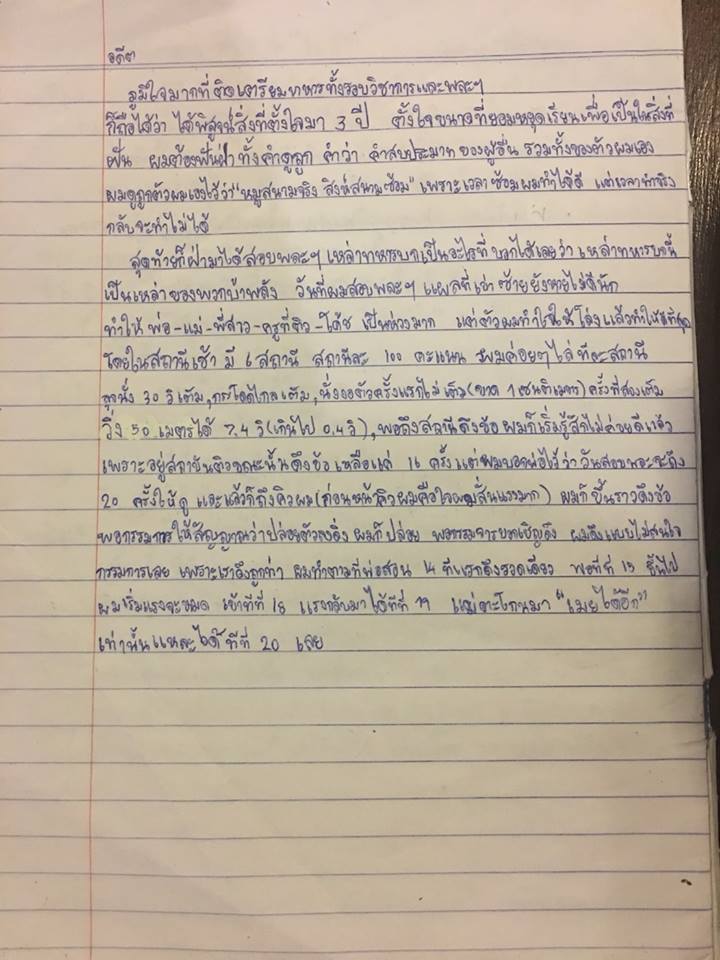 อดีต
ภูมิใจมากที่ติดเตรียมทหารทั้งรอบวิชาการและพละฯ
ก็ถือได้ว่า ได้พิสูจน์สิ่งที่ตั้งใจมา 3 ปี ตั้งใจขนาดที่ยอมหยุดเรียนเพื่อเป็นในสิ่งที่
ฝัน ผมต้องฟันฝ่าทั้งคำดูถูก คำว่า คำสบประมาท ของผู้อื่น รวมทั้งของตัวผมเอง
ผมดูถูกตัวผมเองไว้ว่า "หมูสนามจริง สิงห์สนามซ้อม" เพราะเวลาซ้อมผมทำได้ดี แต่เวลาทำจริง
กลับจะทำไม่ได้
สุดท้ายก็ฝ่ามาได้สอบพละฯ เหล่าทหารบกเป็นอะไรที่บอกได้เลยว่า เหล่าทหารบกนี้
เป็นเหล่าของพวกบ้าพลัง วันที่ผมสอบพละฯ แผลที่เข่าซ้ายยังหายไม่ดีนัก
ทำให้ พ่อ-แม่-พี่สาว-ครูที่ติว-โค้ช เป็นห่วงมาก แต่ตัวผมทำใจให้โล่งแล้วทำให้ดีที่สุด
โดยในสถานีเช้า มี 6 สถานี สถานีละ 100 คะแนน ผมค่อยๆไล่ทีละสถานี
ลุกนั่ง 30 วิเต็ม, กระโดดไกลเต็ม, นั่งงอตัวครั้งแรกไม่เต็ม(ขาด 1 เซนติเมตร) ครั้งที่สองเต็ม
วิ่ง 50 เมตรได้ 7.4 วิ(เกินไป 0.4 วิ), พอถึงสถานีดึงข้อ ผมก็เริ่มรู้สึกไม่ค่อยดีแล้ว
เพราะอยู่สถาบันติวขณะนั้นดึงข้อ เหลือแค่ 16 ครั้ง แต่ผมบอกพ่อไว้ว่าวันสอบพละจะดึง
20 ครั้งให้ดู และแล้วก็ถึงคิวผม(ก่อนหน้าคิวผมคือใจผมสั่นแรงมาก) ผมก็ขึ้นราวดึงข้อ
พอกรรมการให้สัญญาณว่าปล่อยตัวลงดิ่ง ผมก็ปล่อย พอกรรมการบอกเชิญดึง ผมดึงแบบไม่สนใจ
กรรมการเลย เพราะเราดึงถูกท่า ผมทำตามที่พ่อสอน 14 ทีแรกดึงรวดเดียว พอทีที่ 15 ขึ้นไป
ผมเริ่มแรงจะหมด เข้าทีที่ 18 แรงกลับมาได้ทีที่ 19 แม่ตะโกนมา "เมยได้อีก"
เท่านั้นแหละได้ ทีที่ 20 เลย